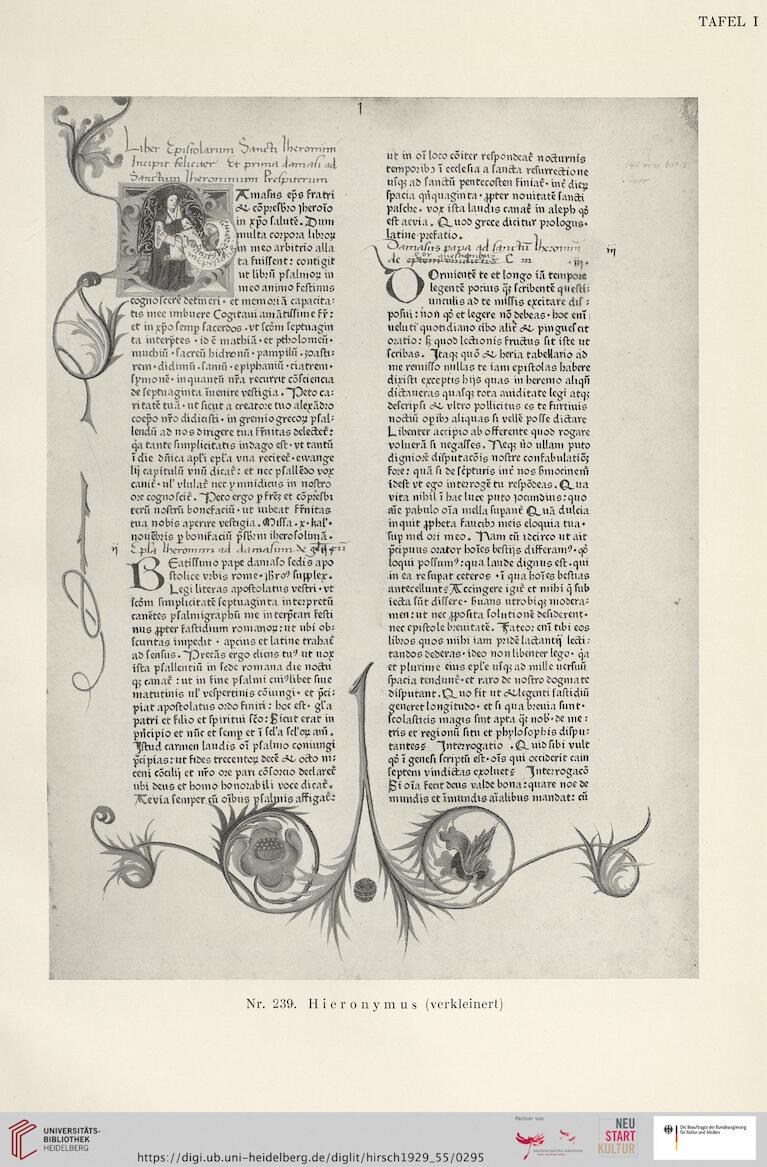 TAFEL I
1
Liber Epistolarum Sancti Iheronimi
Incipit feliciter Et prima damasi ad
Sanctum Iheronimum Prespiterum
Amasus ep̄s fratri
& cōpresb̄ro iheroīo
in xp̄o salutē. Dum
multa corpora libroꝝ
in meo arbitrio alla
ta fuissent: contigit
ut librū psalmoꝝ in
meo animo festinus
cognoscere detineri · et memoriā capacita-
tis mee imbuere Cogitaui amātissime fr̄:
et in xp̄o semp̄ sacerdos · ut scōm septuagin
ta interp̄tes · id ē mathiā · et ptholomeū ·
muchiū · sacreū hidronū · pampilū · ꝛoasti:
rem · didimū · samū · epiphaniū · ciatrem ·
symonē · inquantū nr̄a recurrit cōsciencia
de septuaginta īuenire vestigia. Peto ca-
ritatē tuā · ut sicut a creatore tuo alexādro
coep̄o nr̄o didicisti · in gremio grecoꝝ psal-
lendū ad nos dirigere tua fr̄nitas delectet̄:
q̄a tante simplicitatis indago est · ut tantū
ī die dn̄ica apl̄i ep̄la vna recitet̄ · ewange
lij capitulū vnū dicat̄: et nec psallēdo vox
canit̄ · ul' ylulat̄ nec ymnidicus in nostro
ore cognoscit̄. Peto ergo
terū nostrū bonefaciū · ut iubeat fr̄nitas
tua nobis aperire vestigia. Missa. x. kal'.
nouēbris ꝑ bonifaciū p̄sb̄rm iherosolimā.
ij Ep̄la Iheronimi ad damasum de
BEatissimo pape damaso sedis apo
stolice vrbis rome · supplex.
Legi literas apostolatus vestri · vt
scōm simplicitatē septuaginta interpretū
canētes psalmigraphū me interp̄tari festi
nus ꝓpter fastidium romanoꝝ: ut ubi ob-
scuritas impedit · apcius et latine trahat̄
ad sensus. Precās ergo cliens tu9 ut uox
ista psallentiū in sede romana die noctu
q̄ canat̄: ut in fine psalmi cui9libet siue
matutinis ul' vespertinis cōiungi · et p̄ci-
piat apostolatus ordo finiri: hoc est · gl'a
patri et filio et spiritui sc̄o: Sicut erat in
pn̄cipio et nūc et semp̄ et ī scl'a scl'oꝝ am̄.
Istud carmen laudis oī psalmo coniungi
p̄cipias: ut fides trecentoꝝ decē & octo ni-
ceni cōcilij et nr̄o ore pari cōsorcio declaret̄
ubi deus et homo honorabili voce dicat̄.
Aevia semper cū oībus psalmis affigat̄:
ut in oī loco cōiter respondeat̄ nocturnis
temporib9 ī ecclesia a sancta resurrectione
usq̄ ad sanctū pentecosten finiat̄ · int̄ dieꝝ
spacia qn̄quaginta · ꝓpter nouitatē sancti
pasche · vox ista laudis canat̄ in aleph q̄d
est aevia. Quod grece dicitur prologus·
latine prefatio.
Damasus papa ad sanctū Iheronimū iij
DOrmientē te et longo iā tempore
legentē potius q̄ scribentē questi-
unculis ad te missis excitare dis-
posui: non q̄d et legere nō debeas · hoc enī
ueluti quotidiano cibo alit̄ & pinguescit
oratio: s̄ quod lectionis fructus sit iste ut
scribas. Itaq̄ quō & heria tabellario ad
me remisso nullas te iam epistolas habere
dixisti exceptis hijs quas in heremo aliqn̄
dictaueras quasq̄ tota auiditate legi atq̄
descripsi & vltro pollicitus es te furtiuis
noctiū opib9 aliquas si velle posse dictare
Libenter accipio ab offerente quod rogare
volueră si negasses. Neq̄ ūo ullam puto
digniorē disputacōis nostre confabulatiōē
fore: quā si de sc̄pturis int̄ nos s̄mocinem̄
idest vt ego interrogē tu respōdeas. Qua
vita nihil ī hac luce puto iocundius: quo
aīe pabulo oīa mella supant̄ Quā dulcia
inquit ꝓpheta faucib9 meis eloquia tua·
sup mel ori meo. Nam cū idcirco ut ait
p̄cipuus orator hoīes bestijs differam9 · q̄d
loqui possum9: qua laude dignus est · qui
in ea re supat ceteros · ī qua hoīes bestias
antecellunt? Accingere igit̄ et mihi q̄ sub
iecta sūt dissere · s̄uans utrobiq̄ modera-
men: ut nec ꝓposita solutionē desiderent·
nec epistole breuitatē. Fateor enī tibi eos
libros quos mihi iam pridē lactantij lecti-
tandos dederas · ideo non libenter lego · q̄a
et plurime eius ep̄le usq̄ ad mille uersuū
spacia tendunt̄ · et raro de nostro dogmate
disputant. Quo fit ut & legenti fastidiū
generet longitudo · et si qua breuia sunt·
scolasticis magis sint apta q̄ nob̄ · de me-
tris et regionū situ et phylosophis dispu-
tantes? Interrogatio. Quid sibi vult
q̄d ī genesi scriptū est · oīs qui occiderit cain
septem vindictas exoluet? Interrogacō
Si oīa fecit deus valde bona: quare noe de
mundis et īmundis aīalibus mandat: cū
Nr. 239. Hieronymus (verkleinert)
UNIVERSITÄTS-
BIBLIOTHEK
HEIDELBERG
https://digi.ub.uni-heidelberg.de/diglit/hirsch1929_55/0295
Partner von
DEUTSCHE DIGITALE BIBLIOTHEK
NEU
START
KULTUR
Die Beauftragte der Bundesregierung
für Kultur und Medien